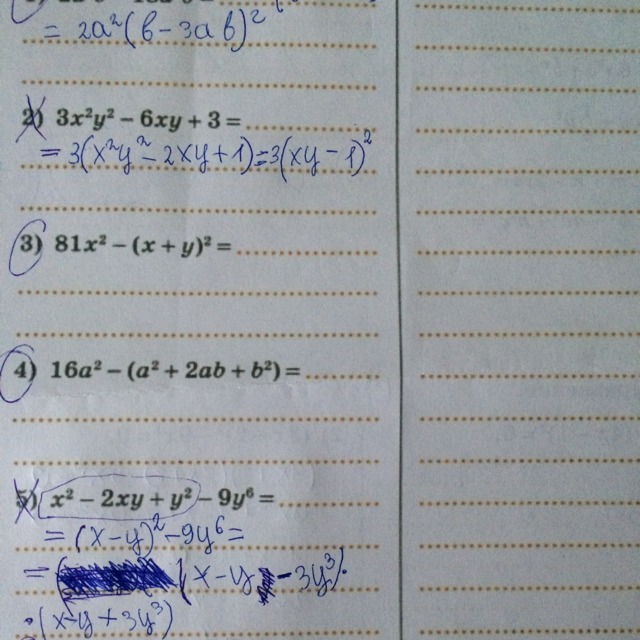 = 2a²(b − 3ab)²
2) 3x²y² − 6xy + 3 =
= 3(x²y² − 2xy + 1) = 3(xy − 1)²
3) 81x² − (x + y)² =
4) 16a² − (a² + 2ab + b²) =
5) x² − 2xy + y² − 9y⁶ =
= (x − y)² − 9y⁶ =
= (x − y − 3y³)·
·(x − y + 3y³)